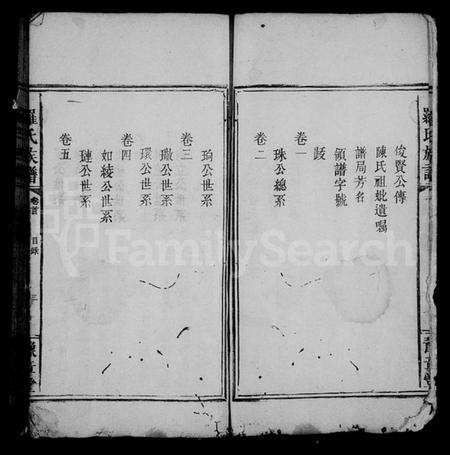 俊賢公傳
陳氏祖妣遺囑
譜局芳名
領譜字號
跋
卷一
珠公總系
卷二
珣公世系
卷三
璥公世系
環公世系
卷四
如綾公世系
卷五
璉公世系
羅氏族譜
卷首
目錄
三
豫章堂
羅氏族譜
豫章堂
FamilySearch